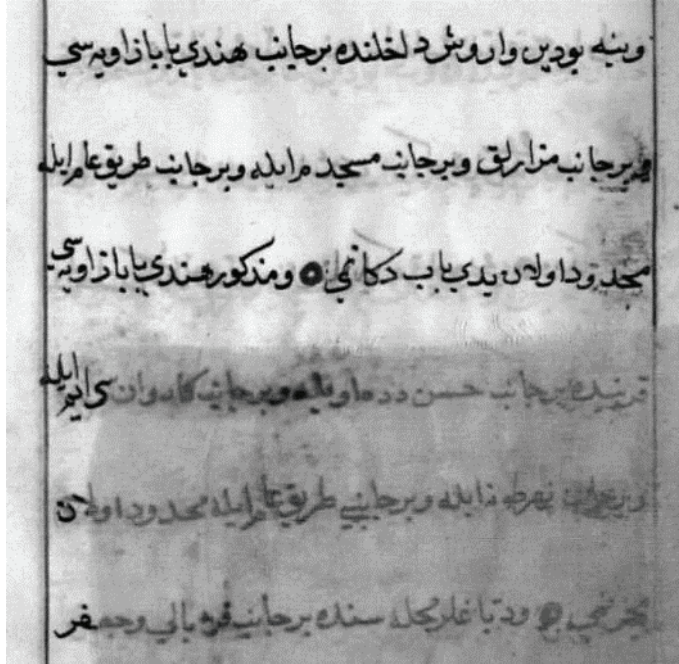 وينه بودين واروش داخلنده بر جانب هندي بابا زاويه سي
بر جانب مزارلق وبر جانب مسجد مرايله وبر جانب طريق عام ايله
محدود اولان يدي باب دكانمي ومذكور هندي بابا زاويه سي
قربنده بر جانب حسن دده وبر جانب كاروان سرايم ايله
وبر جانب ايله وبر جانبي طريق عام ايله محدود اولان
ودباغلر محله سنده بر جانب قره بالي وجعفر